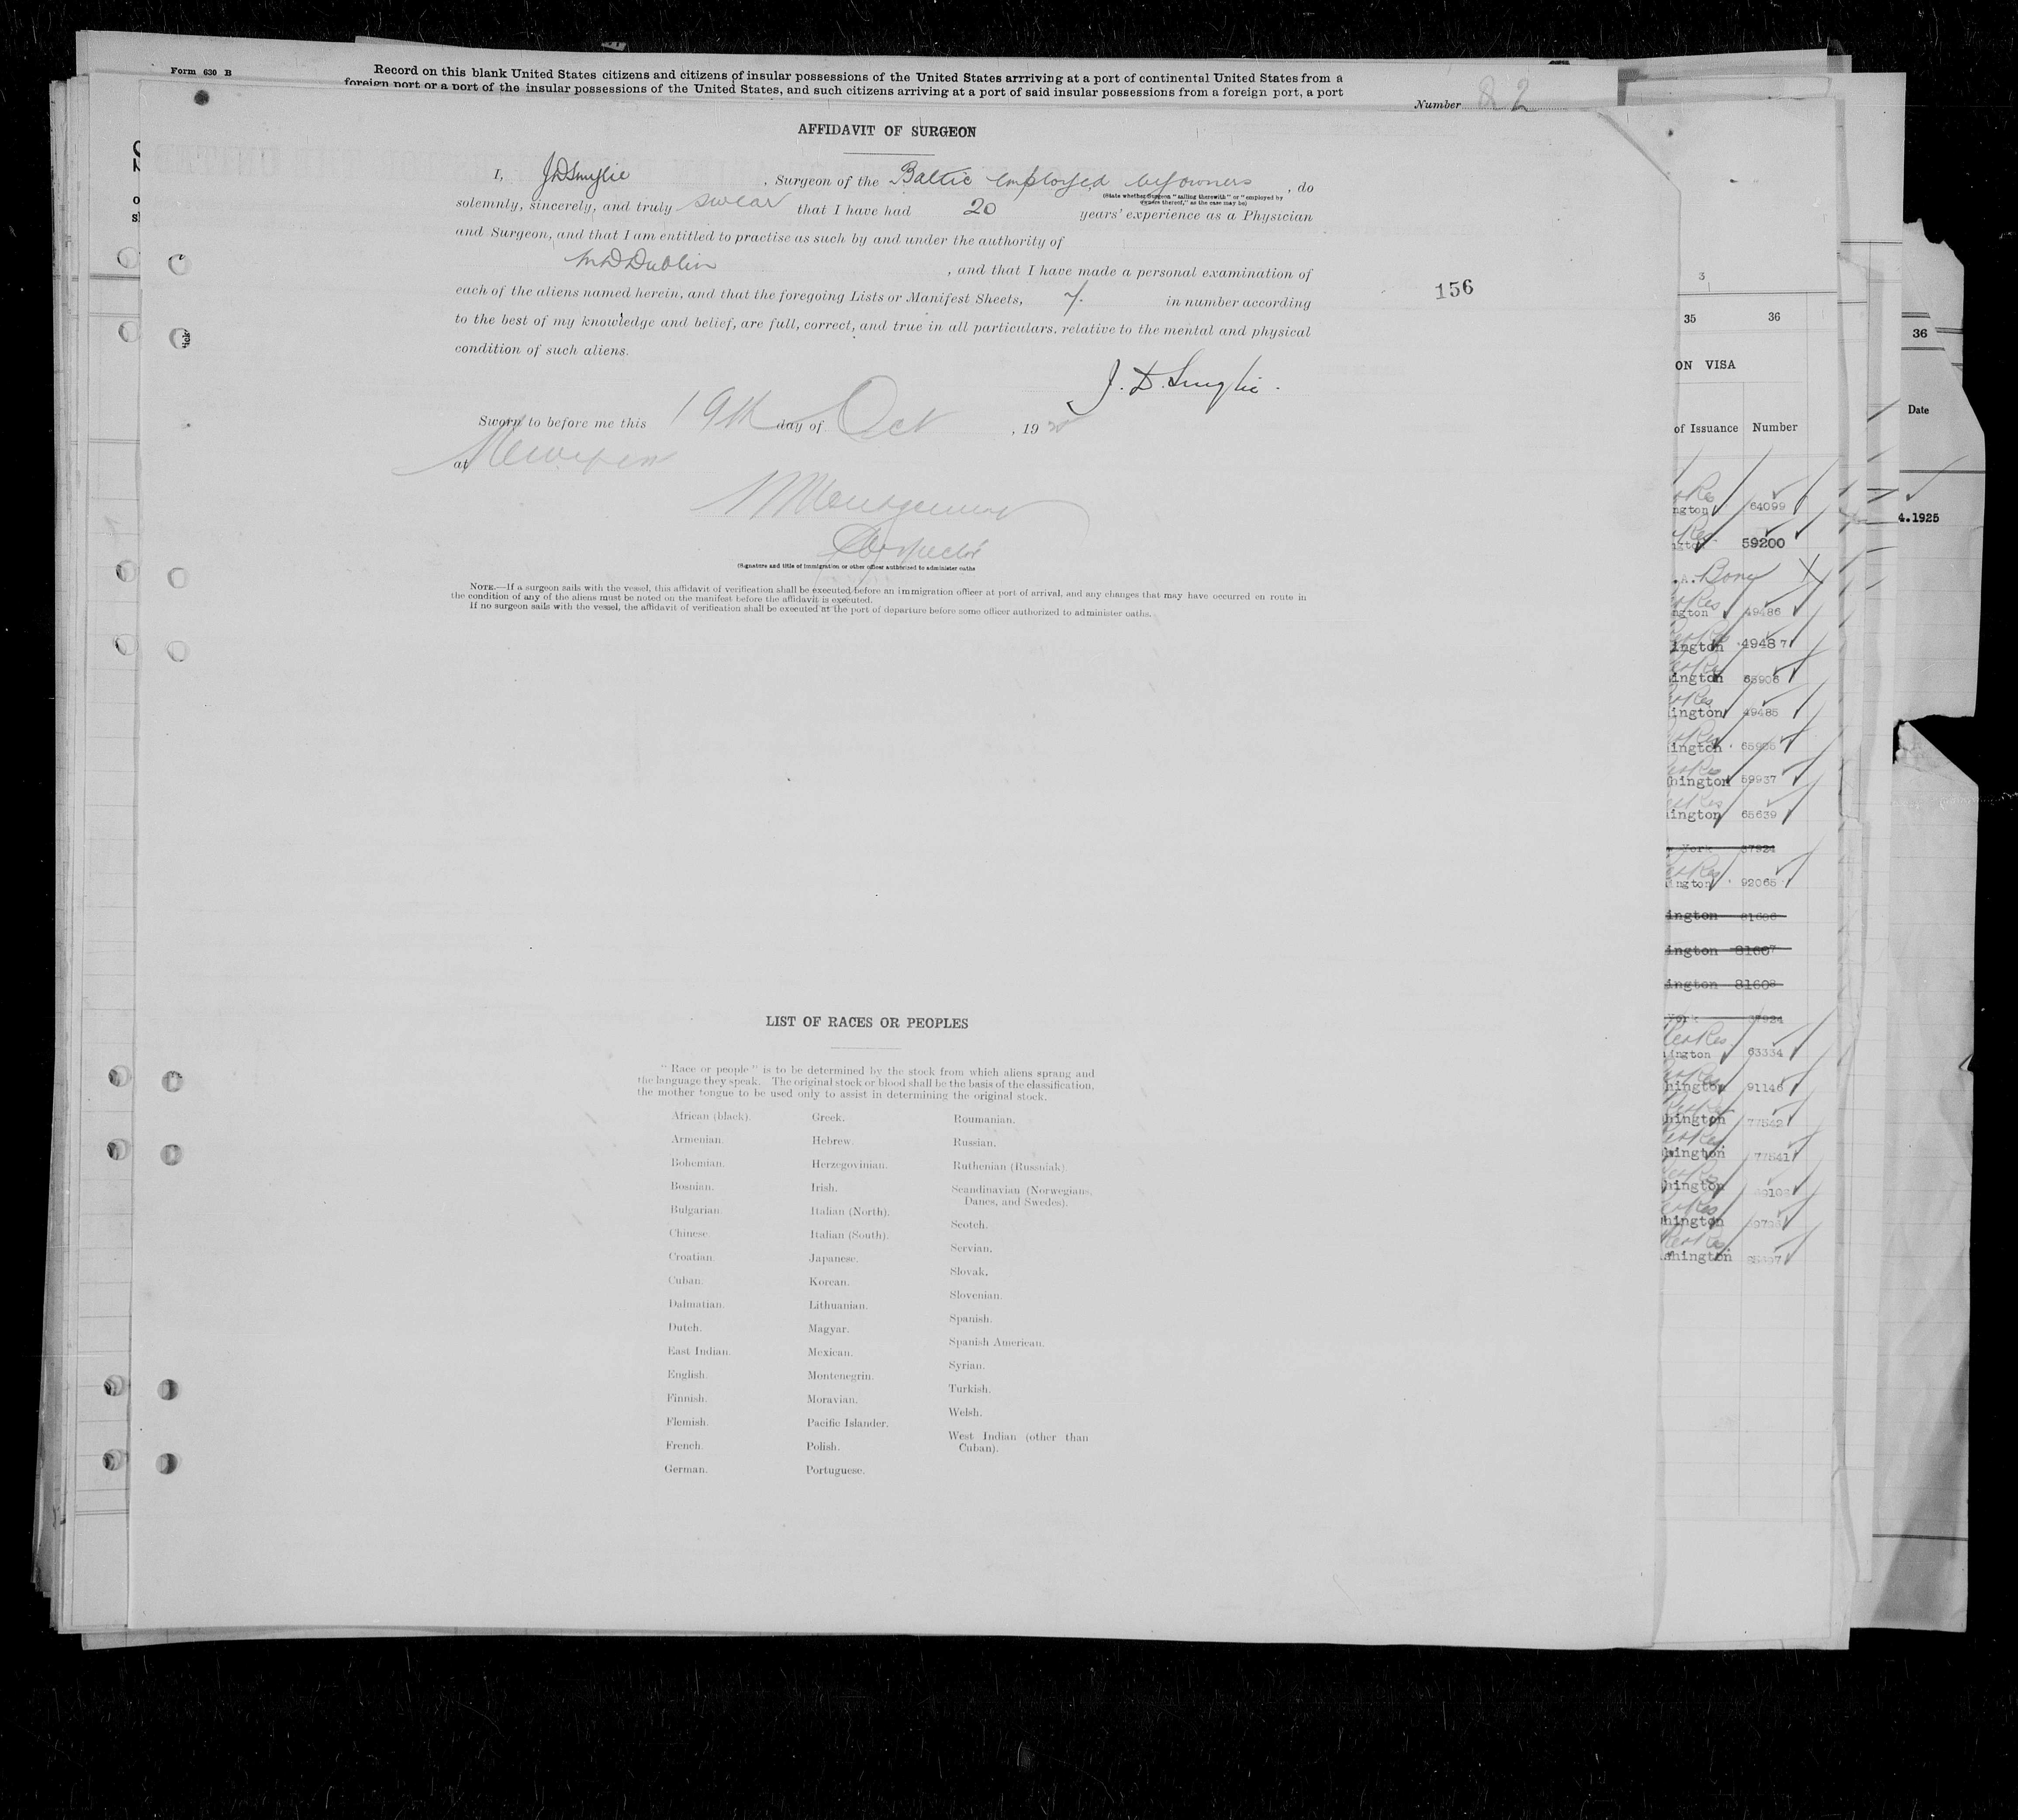 Form 630 B
Record on this blank United States citizens and citizens of insular possessions of the United States arrriving at a port of continental United States from a
foreign port or a port of the insular possessions of the United States, and such citizens arriving at a port of said insular possessions from a foreign port, a port
Number 82
AFFIDAVIT OF SURGEON
I, , Surgeon of the Baltic employed by owners , do
(State whether Surgeon "sailing therewith" or "employed by
owners thereof," as the case may be)
solemnly, sincerely, and truly swear that I have had 20 years' experience as a Physician
and Surgeon, and that I am entitled to practise as such by and under the authority of
MD Dublin , and that I have made a personal examination of
each of the aliens named herein, and that the foregoing Lists or Manifest Sheets, 7. in number according
to the best of my knowledge and belief, are full, correct, and true in all particulars. relative to the mental and physical
condition of such aliens.
156
J. D.
Sworn to before me this 19th day of Oct , 19
at
Montgomery
Inspector
(Signature and title of immigration or other officer authorized to administer oaths
NOTE.—If a surgeon sails with the vessel, this affidavit of verification shall be executed before an immigration officer at port of arrival, and any changes that may have occurred en route in
the condition of any of the aliens must be noted on the manifest before the affidavit is executed.
If no surgeon sails with the vessel, the affidavit of verification shall be executed at the port of departure before some officer authorized to administer oaths.
LIST OF RACES OR PEOPLES
"Race or people" is to be determined by the stock from which aliens sprang and
the language they speak. The original stock or blood shall be the basis of the classification,
the mother tongue to be used only to assist in determining the original stock.
African (black).
Armenian.
Bohemian.
Bosnian.
Bulgarian.
Chinese.
Croatian.
Cuban.
Dalmatian.
Dutch.
East Indian.
English.
Finnish.
Flemish.
French.
German.
Greek.
Hebrew.
Herzegovinian.
Irish.
Italian (North).
Italian (South).
Japanese.
Korean.
Lithuanian.
Magyar.
Mexican.
Montenegrin.
Moravian.
Pacific Islander.
Polish.
Portuguese.
Roumanian.
Russian.
Ruthenian (Russniak).
Scandinavian (Norwegians,
Danes, and Swedes).
Scotch.
Servian.
Slovak.
Slovenian.
Spanish.
Spanish American.
Syrian.
Turkish.
Welsh.
West Indian (other than
Cuban).
3
35 36
ON VISA
of Issuance Number
ngton 64099
59200
Boney
ngton 49486
ington 49487
ington
ington 49485
ington
hington 59937
ington 65639
York 37924
ington 92065
ington
ington 81607
ington 81608
York
ington 63334
hington 91146
hington 77542
hington 77541
hington
hington
shington
36
Date
4.1925